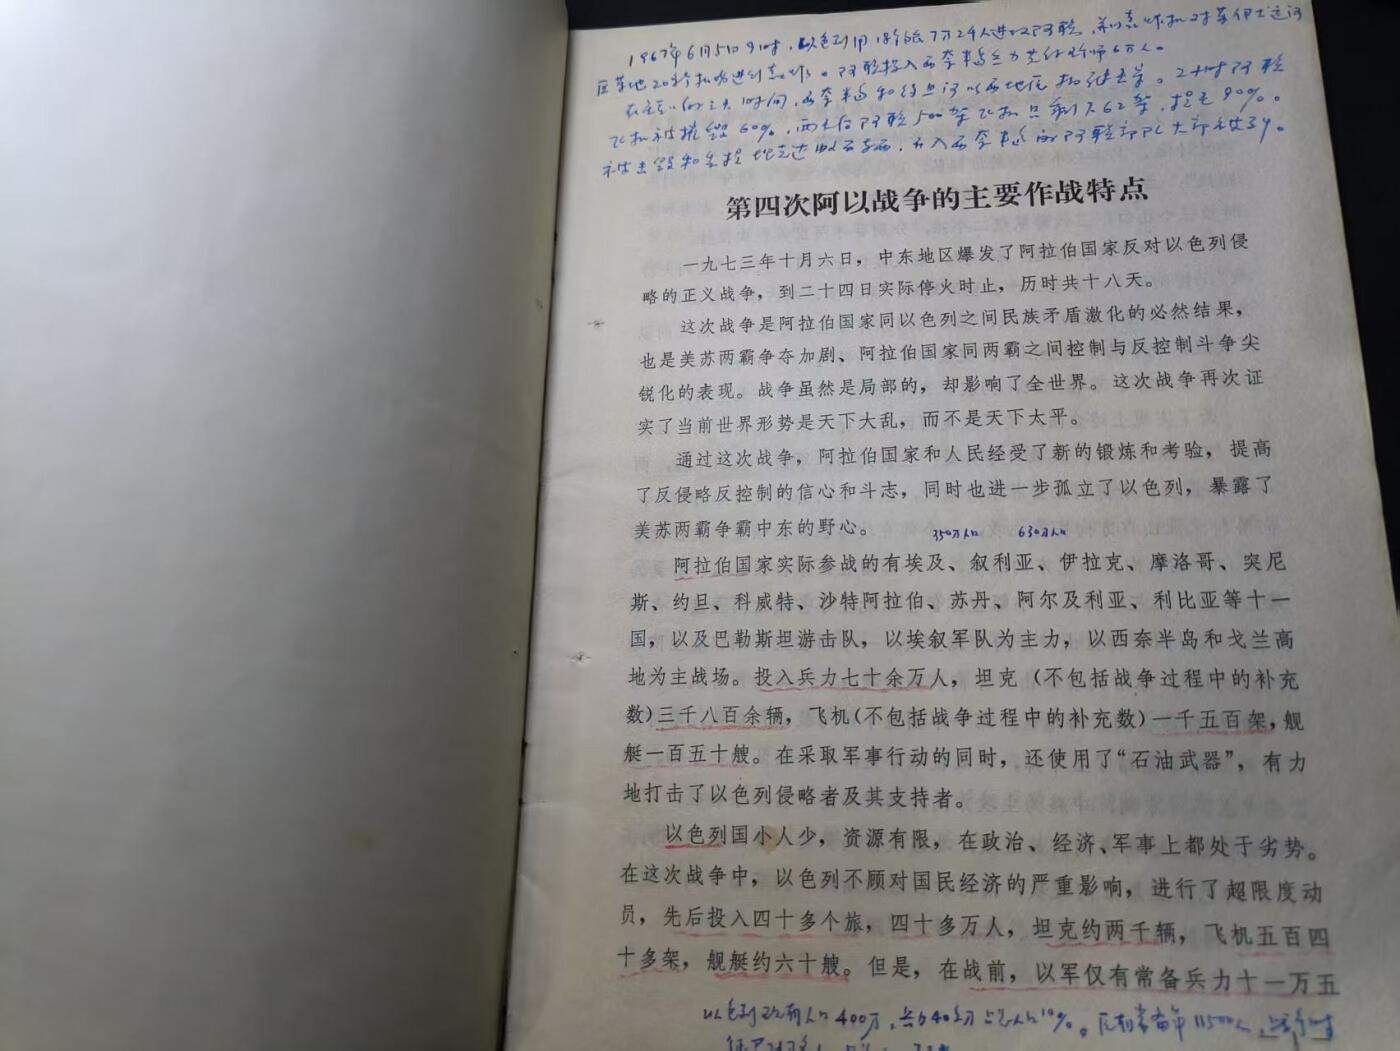 1967年6月5日9时，以色列用18个旅7万2千人进攻阿联，并以轰炸机对苏伊士运河
在 的三天时间，西奈半岛和约旦河以西地区
飞机被摧毁60%，两天后阿联500架飞机只剩下62架，损毁90%。
第四次阿以战争的主要作战特点
一九七三年十月六日，中东地区爆发了阿拉伯国家反对以色列侵
略的正义战争，到二十四日实际停火时止，历时共十八天。
这次战争是阿拉伯国家同以色列之间民族矛盾激化的必然结果，
也是美苏两霸争夺加剧、阿拉伯国家同两霸之间控制与反控制斗争尖
锐化的表现。战争虽然是局部的，却影响了全世界。这次战争再次证
实了当前世界形势是天下大乱，而不是天下太平。
通过这次战争，阿拉伯国家和人民经受了新的锻炼和考验，提高
了反侵略反控制的信心和斗志，同时也进一步孤立了以色列，暴露了
美苏两霸争霸中东的野心。
350万人口 630万人口
阿拉伯国家实际参战的有埃及、叙利亚、伊拉克、摩洛哥、突尼
斯、约旦、科威特、沙特阿拉伯、苏丹、阿尔及利亚、利比亚等十一
国，以及巴勒斯坦游击队，以埃叙军队为主力，以西奈半岛和戈兰高
地为主战场。投入兵力七十余万人，坦克（不包括战争过程中的补充
数）三千八百余辆，飞机（不包括战争过程中的补充数）一千五百架，舰
艇一百五十艘。在采取军事行动的同时，还使用了“石油武器”，有力
地打击了以色列侵略者及其支持者。
以色列国小人少，资源有限，在政治、经济、军事上都处于劣势。
在这次战争中，以色列不顾对国民经济的严重影响，进行了超限度动
员，先后投入四十多个旅，四十多万人，坦克约两千辆，飞机五百四
十多架，舰艇约六十艘。但是，在战前，以军仅有常备兵力十一万五
以色列现有人口400万，兵40多万占总人口10%。